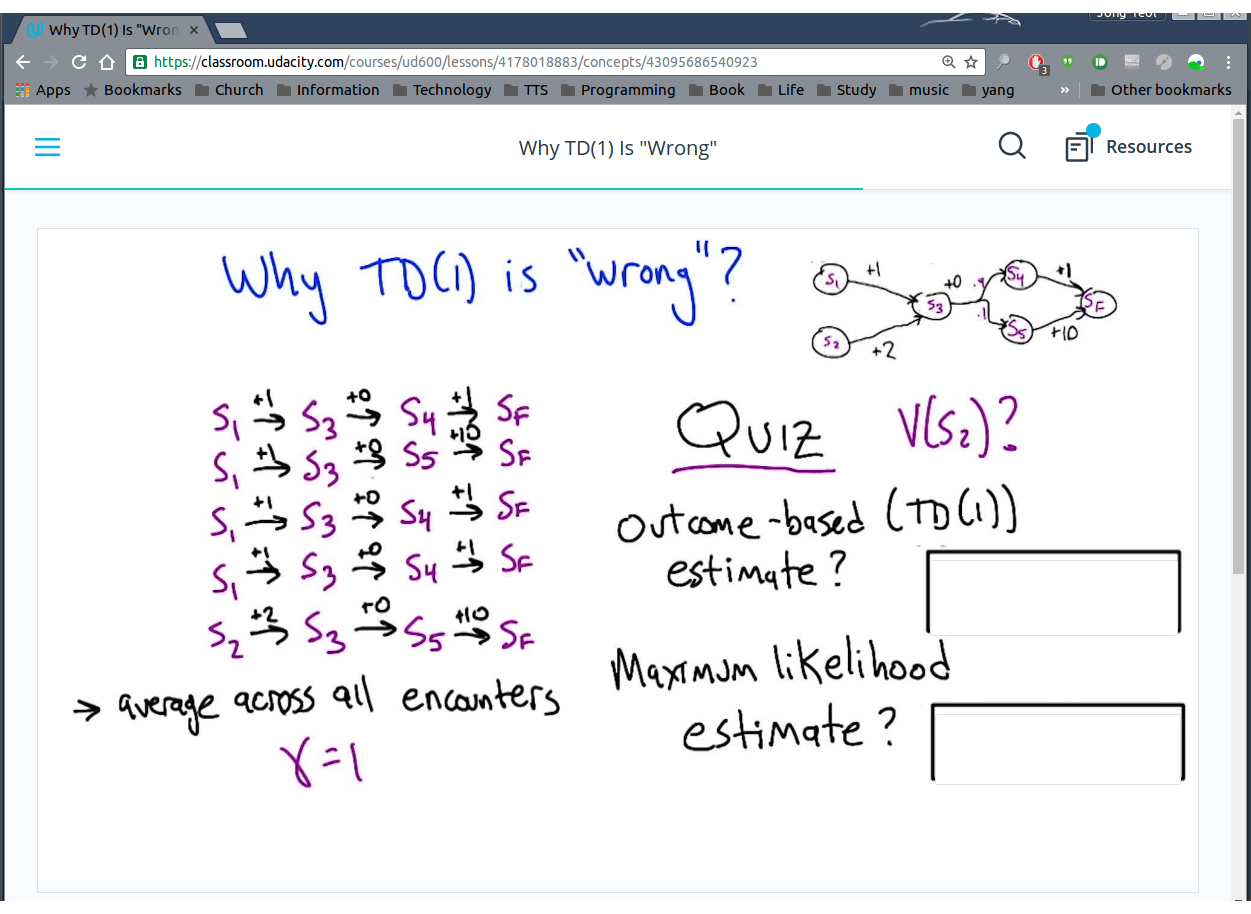 Why TD(1) Is "Wron
https://classroom.udacity.com/courses/ud600/lessons/4178018883/concepts/43095686540923
3
Apps Bookmarks Church Information Technology TTS Programming Book Life Study music yang » Other bookmarks
Why TD(1) Is "Wrong"
Resources
Why TD(1) is "wrong"?
S1 +1 S3 +0 .9 S4 +1 SF
S2 +2 .1 S5 +10
S1 +1→ S3 +0→ S4 +1→ SF
S1 +1→ S3 +0→ S5 +10→ SF
S1 +1→ S3 +0→ S4 +1→ SF
S1 +1→ S3 +0→ S4 +1→ SF
S2 +2→ S3 +0→ S5 +10→ SF
→ average across all encounters
γ=1
Quiz V(S2)?
Outcome-based (TD(1))
estimate?
Maximum likelihood
estimate?